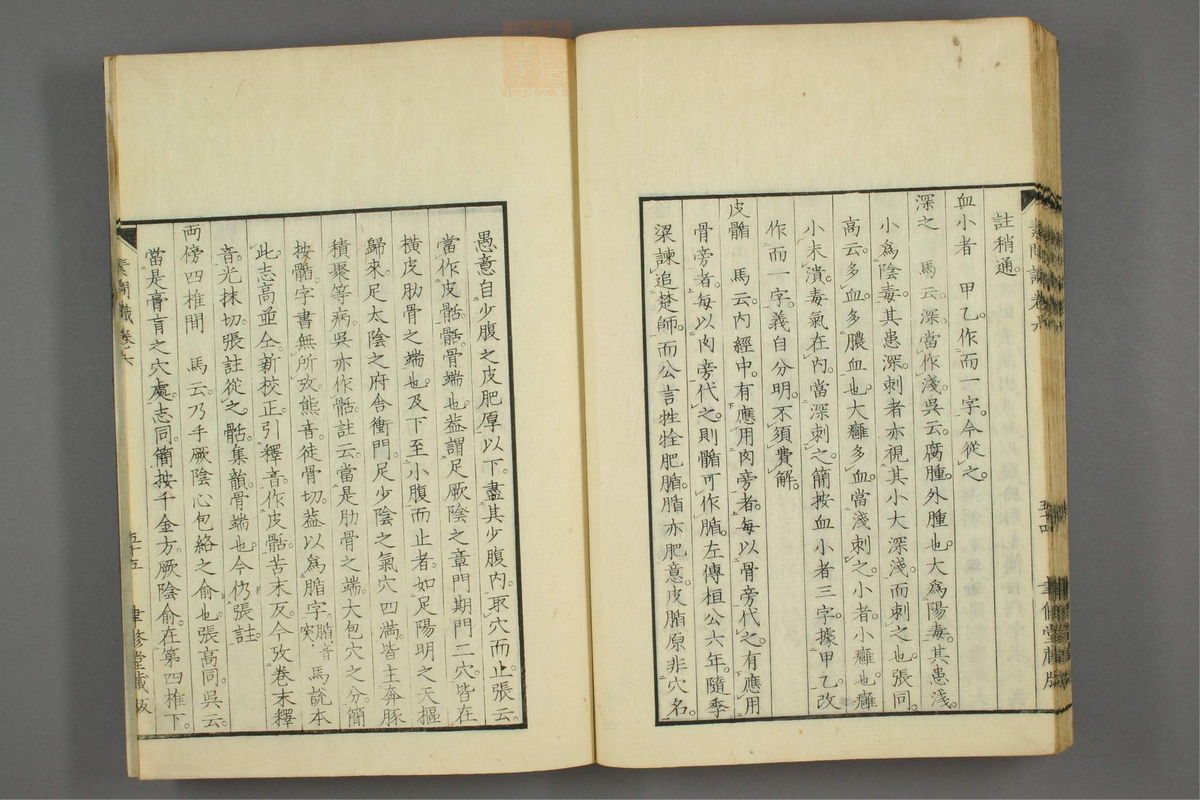 註稍通。
血小者　甲乙作而一字。今從之。
深之　馬云。深當作淺。吳云。腐腫。外腫也。大為陽毒。其患淺。
小為陰毒。其患深。刺者亦視其小大深淺而刺之也。張同。
高云。多血。多膿血也。大癰多血。當淺刺之。小者。小癰也。癰
小未潰。毒氣在內。當深刺之。簡按血小者三字。據甲乙改
作而一字。義自分明。不須費解。
皮䯏　馬云。內經中。有應用肉旁者。每以骨旁代之。有應用
骨旁者。每以肉旁代之。則䯏可作腯。左傳桓公六年。隨季
梁諫追楚師。而公言牲牷肥腯。腯亦肥意。皮腯原非穴名。
愚意自少腹之皮肥厚以下。盡其少腹內。取穴而止。張云。
當作皮骷。骷。骨端也。蓋謂足厥陰之章門期門二穴。皆在
橫皮肋骨之端也。及下至小腹而止者。如足陽明之天樞
歸來。足太陰之府舍衝門。足少陰之氣穴四滿。皆主奔豚
積聚等病。吳亦作骷。註云。當是肋骨之端。大包穴之分。簡
按䯏。字書無所攷。熊音徒骨切。蓋以為腯字。腯音突。馬說本
此。志高並仝。新校正。引釋音。作皮骷。苦末反。今攷卷末釋
音。光抹切。張註從之。骷。集韻骨端也。今仍張註。
両傍四椎間　馬云。乃手厥陰心包絡之俞也。張高同。吳云。
當是膏肓之穴處。志同。簡按千金方。厥陰俞。在第四椎下。
素問識卷六
五十五
聿修堂藏版
五十四
聿修堂藏版